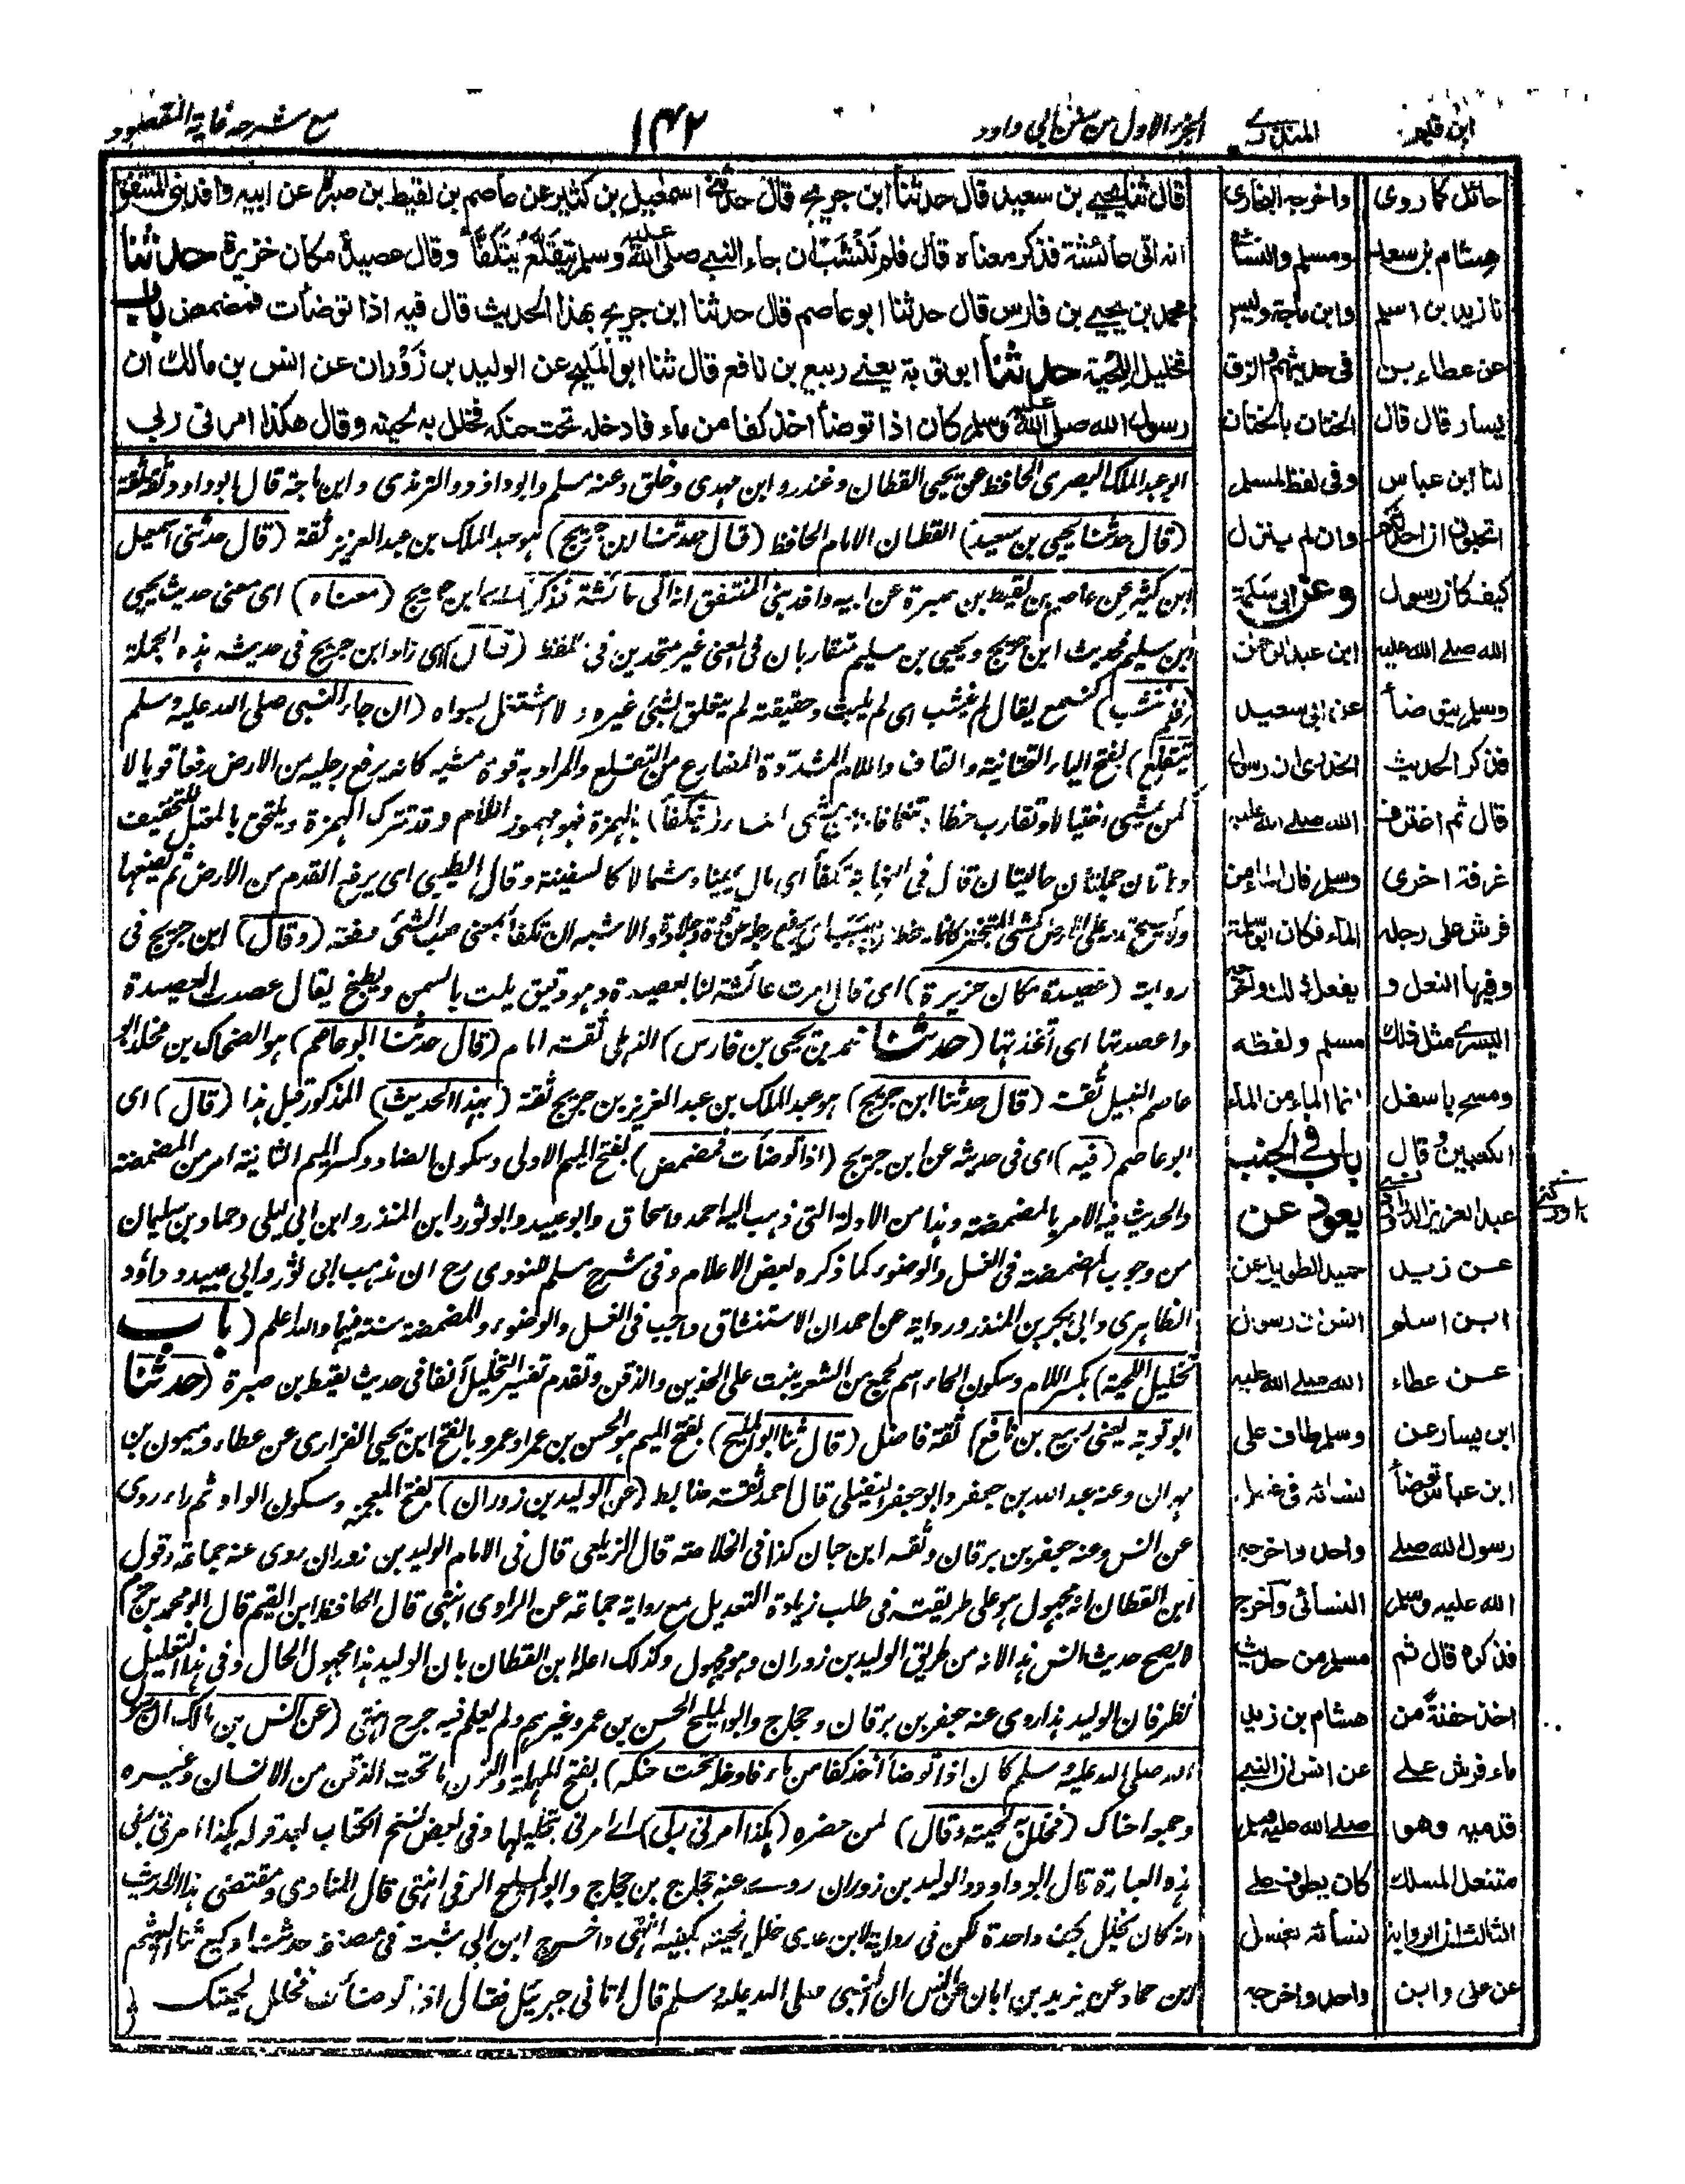 ابن قيم
المنذرى
الجزء الاول من سنن ابي داود
١٤٢
مع شرحه غاية المقصود
قال ثنا يحيى بن سعيد قال حدثنا ابن جريج قال حدثنى اسمعيل بن كثير عن عاصم بن لقيط بن صبرة عن ابيه وافد بني المنتفق
انه اتى عائشة فذكر معناه قال فلم ننشب ان جاء النبي صلى الله عليه وسلم يتقلع يتكفأ وقال عصيدة مكان خزيرة حدثنا
محمد بن يحيى بن فارس قال حدثنا ابو عاصم قال حدثنا ابن جريج بهذا الحديث قال فيه اذا توضأت فمضمض باب
تخليل اللحية حدثنا ابو توبة يعنى ربيع بن نافع قال ثنا ابو المليح عن الوليد بن زوران عن انس بن مالك ان
رسول الله صلى الله عليه وسلم كان اذا توضأ اخذ كفا من ماء فادخله تحت حنكه فخلل به لحيته وقال هكذا امرنى ربي
ابو عبد الملك البصري الحافظ عن يحيى القطان وغندر وابن مهدى وخلق وعنه مسلم وابو داؤد والترمذى وابن ماجة قال ابو داود ثقة ثقة
(قال حدثنا يحيى بن سعيد) القطان الامام الحافظ (قال حدثنا ابن جريج) هو عبد الملك بن عبد العزيز ثقة (قال حدثنى اسمعيل
ابن كثير عن عاصم بن لقيط بن صبرة عن ابيه وافد بني المنتفق انه اتى عائشة فذكر) ابن جريج (معناه) اى معنى حديث يحيى
ابن سليم فحديث ابن جريج ويحيى بن سليم متقاربان فى المعنى غير متحدين فى اللفظ (قال) اى زاد ابن جريج فى حديثه هذه الجملة
(فلم ننشب) كنسمع يقال لم ينشب اى لم يلبث وحقيقته لم يتعلق بشئ غيره ولا اشتغل بسواه (ان جاء النبى صلى الله عليه وسلم
يتقلع) بفتح الياء التحتانية والقاف واللام المشددة المضارع من التقلع والمراد به قوة مشيه كانه يرفع رجليه من الارض رفعا قويا لا
كمن يمشى اختيالا وتقارب خطاه (يتكفأ) بالهمزة فهو مهموز اللام وقد تترك الهمزة ويلتحق بالمعتل للتخفيف
وهاتان جملتان حاليتان قال فى النهاية تكفأ اى مال يمينا وشمالا كالسفينة وقال الطيبي اى يرفع القدم من الارض ثم يضعها
ولا يمسح قدمه على الارض كمشى المتبختر كانما ينحط من صبب اى يرفع رجله عن قوة وجلادة والاشبه ان تكفأ بمعنى صب الشئ دفعته (وقال) ابن جريج فى
روايته (عصيدة مكان خزيرة) اى قال امرت عائشة لنا بعصيدة وهو دقيق يلت بالسمن ويطبخ يقال عصدت العصيدة
واعصدتها اى اتخذتها (حدثنا محمد بن يحيى بن فارس) الذهلى ثقة امام (قال حدثنا ابو عاصم) هو الضحاك بن مخلد ابو
عاصم النبيل ثقة (قال حدثنا ابن جريج) هو عبد الملك بن عبد العزيز بن جريج ثقة (بهذا الحديث) المذكور قبل هذا (قال) اى
ابو عاصم (فيه) اى فى حديثه عن ابن جريج (اذا توضأت فمضمض) بفتح الميم الاولى وسكون الضاد وكسر الميم الثانية امر من المضمضة
والحديث فيه الامر بالمضمضة وهذا من الادلة التى ذهب اليه احمد واسحاق وابو عبيد وابو ثور وابن المنذر وابن ابى ليلى وحماد بن سليمان
من وجوب المضمضة فى الغسل والوضوء كما ذكره بعض الاعلام وفى شرح مسلم للنووى رح ان مذهب ابى ثور وابى عبيد وداؤد
الظاهرى وابى بكر بن المنذر ورواية عن احمد ان الاستنشاق واجب فى الغسل والوضوء والمضمضة سنة فيها والله اعلم (باب
تخليل اللحية) بكسر اللام وسكون الحاء اسم لجمع من الشعر ينبت على الخدين والذقن وتقدم تفسير التخليل آنفا فى حديث لقيط بن صبرة (حدثنا
ابو توبة يعنى ربيع بن نافع) ثقة فاضل (قال ثنا ابو المليح) بفتح الميم هو الحسن بن عمر او عمرو بالفتح ابن يحيى الفزارى عن عطاء وميمون بن
مهران وعنه عبد الله بن جعفر وابو جعفر النفيلى قال احمد ثقة ضابط (عن الوليد بن زوران) بفتح المعجمة وسكون الواو ثم راء روى
عن انس وعنه جعفر بن برقان وثقه ابن حبان كذا فى الخلاصة قال الزيلعى قال فى الامام الوليد بن زوران روى عنه جماعة وقول
ابن القطان انه مجهول هو على طريقته فى طلب زيادة التعديل مع رواية جماعة عن الراوى انتهى قال الحافظ ابن القيم قال ابو محمد بن حزم
لا يصح حديث انس هذا لانه من طريق الوليد بن زوران وهو مجهول وكذلك اعله ابن القطان بان الوليد هذا مجهول الحال وفى هذا التعليل
نظر فان الوليد هذا روى عنه جعفر بن برقان وحجاج وابو المليح الحسن بن عمر وغيرهم ولم يعلم فيه جرح انتهى (عن انس بن مالك ان رسول
الله صلى الله عليه وسلم كان اذا توضأ اخذ كفا من ماء فادخله تحت حنكه) بفتح المهملة والنون ما تحت الذقن من الانسان وغيره
وجمعه احناك (فخلل به لحيته وقال) لمن حضره (هكذا امرنى ربى) اى امرنى بتخليلها وفى بعض نسخ الكتاب بعد قوله هكذا امرنى ربى
هذه العبارة قال ابو داود والوليد بن زوران روى عنه حجاج بن حجاج وابو المليح الرقى انتهى قال المناوى ومقتضى هذا الحديث
انه كان يخلل بكف واحدة لكن فى رواية لابن عدى خلل لحيته بكفيه انتهى واخرج ابن ابى شيبة فى مصنفه حدثنا وكيع ثنا الهيثم
ابن حماد عن يزيد بن ابان عن انس ان النبى صلى الله عليه وسلم قال اتانى جبرئيل فقال اذا توضأت فخلل لحيتك
واخرجه البخارى
ومسلم والنسائى
وابن ماجة وليس
فى حديثهم الزق
الختان بالختان
وفى لفظ لمسلم
وان لم ينزل
وعن ابى سلمة
ابن عبد الرحمن
عن ابى سعيد
الخدرى ان رسول
الله صلى الله عليه
وسلم قال الماء من
الماء فكان ابو سلمة
يفعل ذلك واخرجه
مسلم ولفظه
انما الماء من الماء
باب فى الجنب
يعود عن
حميد الطويل عن
انس ان رسول
الله صلى الله عليه
وسلم طاف على
نسائه فى غسل
واحد واخرجه
النسائى واخرج
مسلم من حديث
هشام بن زيد
عن انس ان النبى
صلى الله عليه وسلم
كان يطوف على
نسائه بغسل
واحد واخرجه
حائل كما روى
هشام بن سعد
نا زيد بن اسلم
عن عطاء بن
يسار قال قال
لنا ابن عباس
اتحبون ان احدثكم
كيف كان رسول
الله صلى الله عليه
وسلم يتوضأ
فذكر الحديث
قال ثم اغترف
غرفة اخرى
فرش على رجله
وفيها النعل و
اليسرى مثل ذلك
ومسح باسفل
الكعبين وقال
عبد العزيز الدراوردى
عن زيد
ابن اسلم
عن عطاء
ابن يسار عن
ابن عباس توضأ
رسول الله صلى
الله عليه وسلم
فذكره قال ثم
اخذ حفنة من
ماء فرش على
قدميه وهو
متنعل المسلك
الثالث ان الرواية
عن على وابن